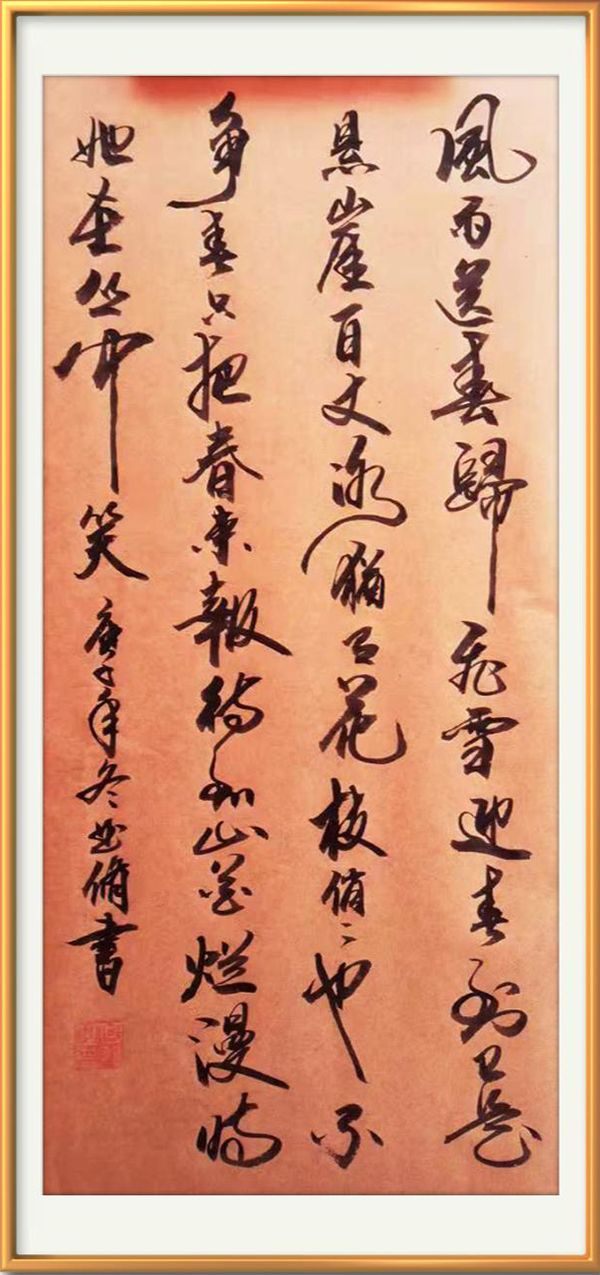 風雨送春歸飛雪迎春到已是
悬崖百丈冰猶有花枝俏〻也不
争春只把春来報待到山花烂漫时
她在丛中笑 庚子年冬脩書